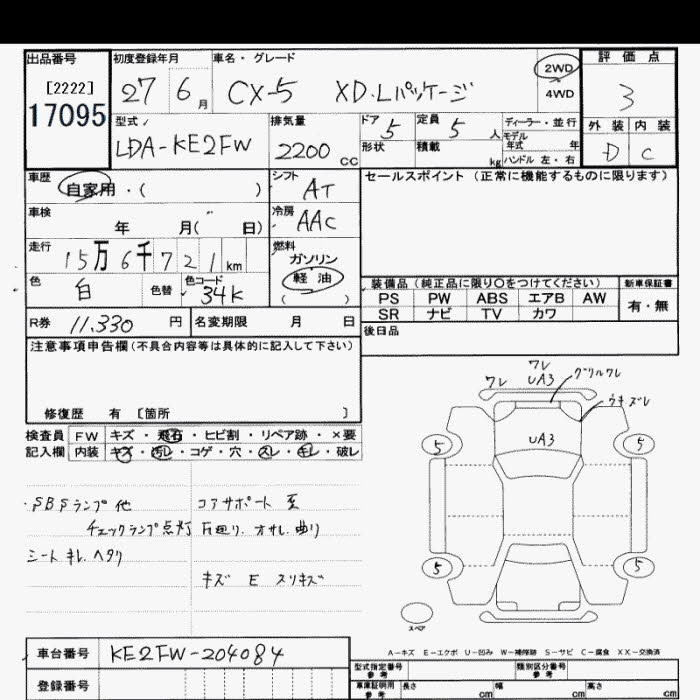 出品番号
[2222]
17095
初度登録年月
27 6月
車名・グレード
CX-5 XD・Lパッケージ
2WD
4WD
評価点
3
外装 内装
D C
型式
LDA-KE2FW
排気量
2200 cc
ドア 5
形状
定員 5 人
積載 kg
ディーラー・並行
モデル年式 年
ハンドル 左・右
車歴
自家用・( )
シフト
AT
車検
年 月( 日)
冷房
AAC
走行
15万6千721km
燃料
ガソリン
軽油
( )
色
白
色替
色コード
34K
セールスポイント(正常に機能するものに限ります)
装備品(純正品に限り○をつけてください)
PS PW ABS エアB AW
SR ナビ TV カワ
新車保証書
有・無
R券 11,330 円
名変期限 月 日
後日品
注意事項申告欄(不具合内容等は具体的に記入して下さい)
修復歴 有 [箇所 ]
検査員記入欄
FW キズ・飛石・ヒビ割・リペア跡・×要
内装 キズ・汚レ・コゲ・穴・スレ・キレ・破レ
・SBSランプ他
チェックランプ点灯
シートキレ、ヘタリ
コアサポート 至
下廻り、オサレ、曲り
キズ E スリキズ
ワレ
ワレ UA3
グリルワレ
ウキズレ
UA3
5 5
5 5
スペア
A-キズ E-エクボ U-凹み W-補修跡 S-サビ C-腐食 XX-交換済
車台番号 KE2FW-204084
登録番号
型式指定番号
参考
類別区分番号
参考
車庫証明用
参考
長さ cm 幅 cm 高さ cm